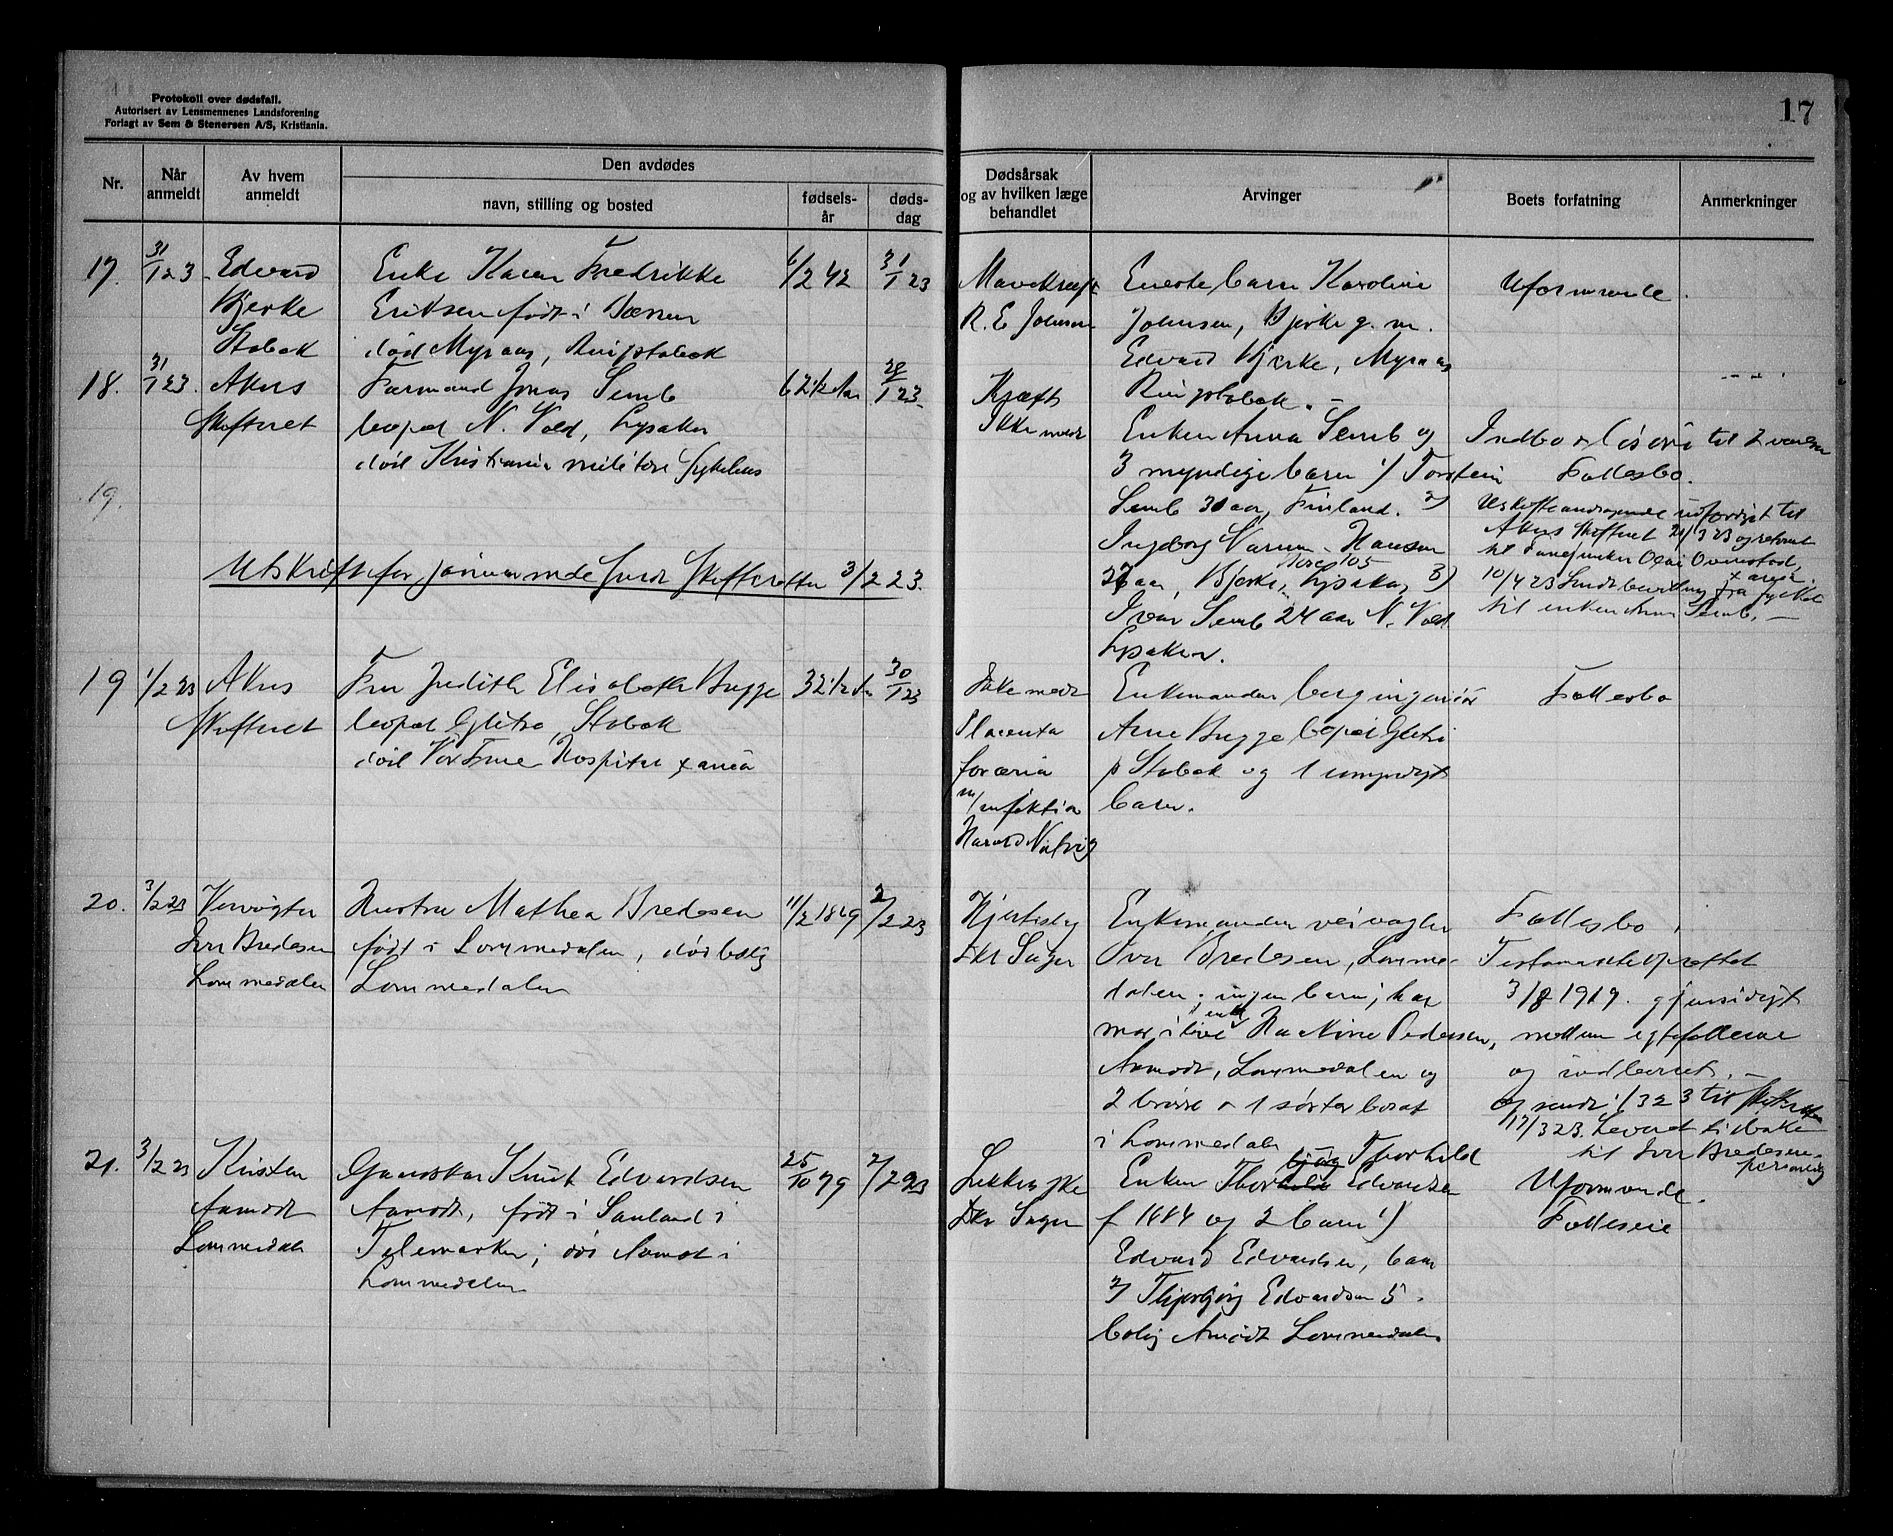 Protokoll over dødsfall.
Autorisert av Lensmennenes Landsforening
Forlagt av Sem & Stenersen A/S, Kristiania.
17
Nr.
Når anmeldt
Av hvem anmeldt
Den avdødes
navn, stilling og bosted
fødselsår
dødsdag
Dødsårsak og av hvilken læge behandlet
Arvinger
Boets forfatning
Anmerkninger
17.
31/1 23
Edvard
Bjerke
Stabæk
Enke Karen Fredrikke
Eriksen født i
død Myraas, Ringstabæk
6/2 42
31/1 23
Mavekræft
R. E. Johnsen
Eneste barn Karoline
Johnsen, Bjerke g. m.
Edvard Bjerke, Myraas
Ringstabæk. -
Uformuende.
18.
31/1 23.
Akers
Skifteret
Jonas Semb
bopæl N. Vold, Lysaker
død Kristiania militære sykehus
62 1/2 Aar
28/1 23.
Kræft
Ikke
Enken Anna Semb og
3 myndige barn 1) Torstein
Semb 31 aar, Finland. 2)
Ingborg Varum-Hansen
aar, Bjerke, Lysaker, 3)
Ivar Semb 24 aar N. Vold
Lysaker.
Indbo
til
Fællesbo.
til
Akers Skifteret 21/3 23 og
til Olai
10/4 23 Sendt bevilling fra fylket
til enken Anna Semb. -
19.
Utskrift for januar sendt Skifteretten 3/2 23.
19
1/2 23
Akers
Skifteret
Fru Judith Elisabeth Bugge
bopæl Gletne, Stabæk
død Vor Frue Hospital
32 1/2 Aar
30/1 23
Ikke
Placenta
m/ infektion
Harald Natvig
Enkemanden bergingeniør
Arne Bugge bopæl
p Stabæk og 1 umyndigt
barn.
Fællesbo
20.
3/2 23
Veivogter
Iver Bredesen
Lommedalen
Hustru Mathea Bredesen
født i Lommedalen, død bolig
Lommedalen
11/2 1869
2/2 23
Hjertesyg
Dkr Sager
Enkemanden veivogter
Iver Bredesen, Lomme-
dalen; ingen barn; har
mor i live Pedersen,
Aamodt, Lommedalen og
2 brødre & 1 søster bosat
i Lommedalen
Fællesbo,
Testamente oprettet
3/8 1919. gjensidigt
mellem egtefællerne
og indlevert. -
17/3 23. Leveret tilbake
til Iver Bredesen
personlig
21.
3/2 23
Kristen
Aamodt
Lommedalen
Gaardskar Knut Edvardsen
Aamodt, født i Sauland i
Telemarken; død Aamot i
Lommedalen
25/10 79
2/2 23
Dkr Sager
Enken Thorhild Edvardsen
f 1884 og 2 barn 1)
Edvard Edvardsen, 6 aar
2) Thjorbjørg Edvardsen 5.
bolig Amodt Lommedalen
Uformuende.
Fælleseie